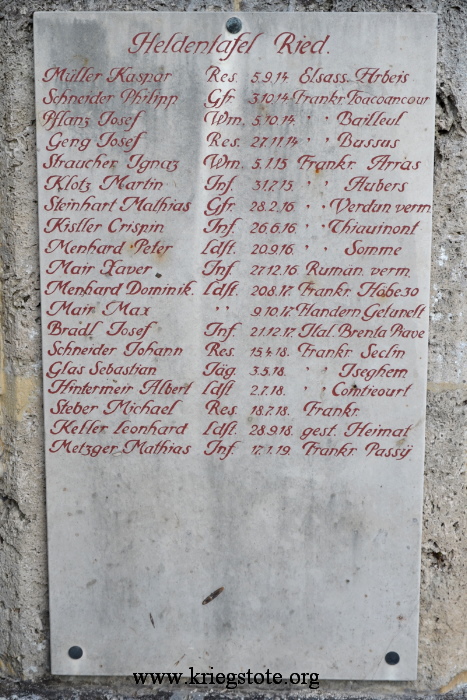 Heldentafel Ried.
Müller Kaspar Res. 5.9.14 Elsass. Arbeis
Schneider Philipp Gfr. 3.10.14 Frankr. Foacoancour
Pflanz Josef Wm. 5.10.14 " " Bailleul
Geng Josef Res. 27.11.14 " " Bussus
Straucher Ignaz Wm. 5.1.15 Frankr. Arras
Klotz Martin Inf. 31.7.15 " " Aubers
Steinhart Mathias Gfr. 28.2.16 " " Verdun verm.
Kistler Crispin Inf. 26.6.16 " " Thiaumont
Menhard Peter Ldst. 20.9.16 " " Somme
Mair Xaver Inf. 27.12.16 Rumän. verm.
Menhard Dominik. Ldst. 20.8.17 Frankr. Höhe 30
Mair Max " 9.10.17 Flandern
Bradl Josef Inf. 21.12.17 Ital. Brenta Piave
Schneider Johann Res. 15.4.18. Frankr. Seclin
Glas Sebastian Jäg. 3.5.18. " " Iseghem
Hintermeir Albert Ldst. 2.7.18. "
Steber Michael Res. 18.7.18. Frankr.
Keller Leonhard Ldst. 28.9.18. gest. Heimat
Metzger Mathias Inf. 17.1.19. Frankr. Passÿ
www.kriegstote.org